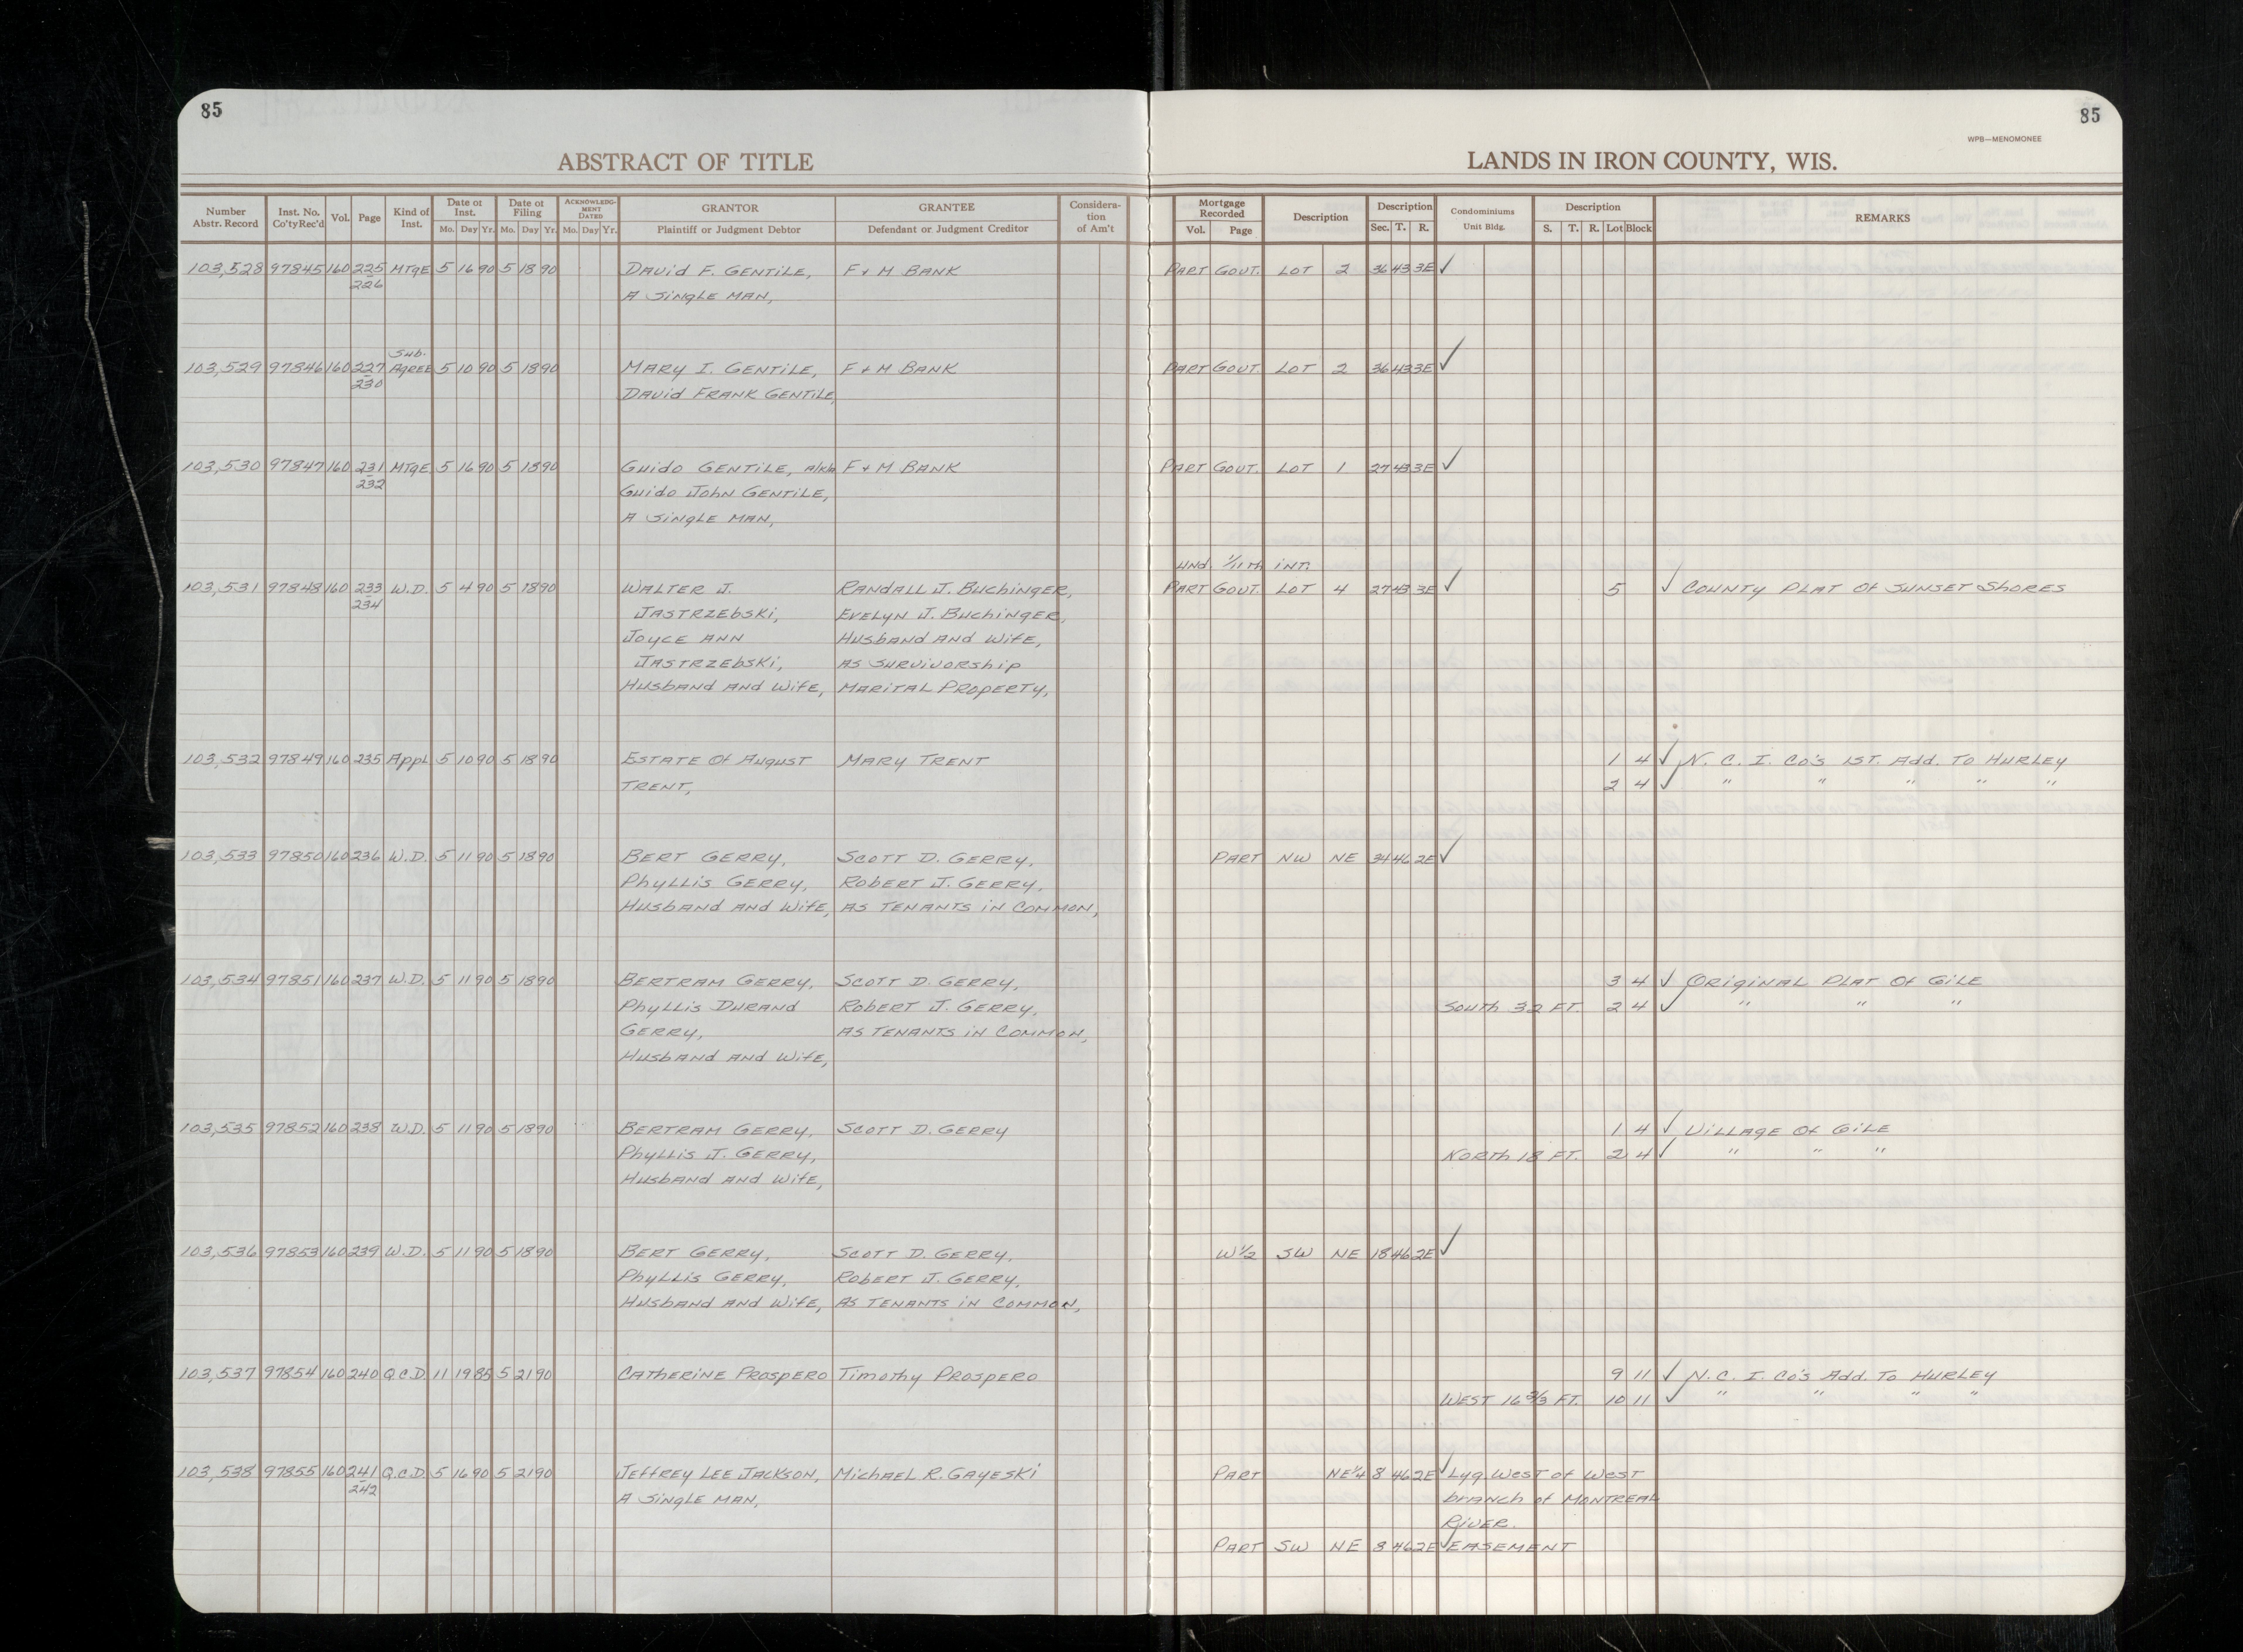 85
85
WPB—MENOMONEE
ABSTRACT OF TITLE
LANDS IN IRON COUNTY, WIS.
Number Abstr. Record
Inst. No. Co'ty Rec'd
Vol.
Page
Kind of Inst.
Date of Inst. Mo. Day Yr.
Date of Filing Mo. Day Yr.
ACKNOWLEDGMENT DATED Mo. Day Yr.
GRANTOR Plaintiff or Judgment Debtor
GRANTEE Defendant or Judgment Creditor
Consideration of Am't
Mortgage Recorded Vol. Page
Description
Description Sec. T. R.
Condominiums Unit Bldg.
Description S. T. R. Lot Block
REMARKS
103,528 97845 160 225 MTgE 5 16 90 5 18 90 DAVid F. GENTiLE, F & M BANK PART GOVT. LOT 2 36 43 3E ✓
226 A SiNgLE MAN,
Sub.
103,529 97846 160 227 AgREE 5 10 90 5 18 90 MARY I. GENTiLE, F & M BANK PART GOVT. LOT 2 36 43 3E ✓
230 DAVid FRANK GENTiLE,
103,530 97847 160 231 MTgE 5 16 90 5 18 90 Guido GENTiLE, A/K/A F & M BANK PART GOVT. LOT 1 27 43 3E ✓
232 Guido JohN GENTiLE,
A SiNgLE MAN,
UNd. 1/11 Th INT.
103,531 97848 160 233 W.D. 5 4 90 5 18 90 WALTER J. RANdALL J. BuchiNgER, PART GOVT. LOT 4 27 43 3E ✓ 5 ✓ COUNTY PLAT Of SUNSET ShORES
234 JASTRZEbSKi, EVELyN J. BuchiNgER,
JOyCE ANN HUSbAND AND WifE,
JASTRZEbSKi, AS SURViVORShip
HUSbAND AND WifE, MARiTAL PROpERTY,
103,532 97849 160 235 AppL 5 10 90 5 18 90 ESTATE Of AugusT MARY TRENT 1 4 ✓ N. C. I. Co's 1ST. Add. To HURLEY
TRENT, 2 4 ✓ " " " " "
103,533 97850 160 236 W.D. 5 11 90 5 18 90 BERT GERRY, SCOTT D. GERRY, PART NW NE 34 46 2E ✓
PhyLLiS GERRY, RObERT J. GERRY,
HUSbAND AND WifE, AS TENANTS iN COMMON,
103,534 97851 160 237 W.D. 5 11 90 5 18 90 BERTRAM GERRY, SCOTT D. GERRY, 3 4 ✓ ORigiNAL PLAT Of GiLE
PhyLLiS DURAND RObERT J. GERRY, SOUTh 32 FT. 2 4 ✓ " " "
GERRY, AS TENANTS iN COMMON,
HUSbAND AND WifE,
103,535 97852 160 238 W.D. 5 11 90 5 18 90 BERTRAM GERRY, SCOTT D. GERRY 1 4 ✓ ViLLAGE Of GiLE
PhyLLiS J. GERRY, NORTh 18 FT. 2 4 ✓ " " "
HUSbAND AND WifE,
103,536 97853 160 239 W.D. 5 11 90 5 18 90 BERT GERRY, SCOTT D. GERRY, W 1/2 SW NE 18 46 2E ✓
PhyLLiS GERRY, RObERT J. GERRY,
HUSbAND AND WifE, AS TENANTS iN COMMON,
103,537 97854 160 240 Q.C.D. 11 19 85 5 21 90 CATHERiNE PROSpERO TimOThy PROSpERO 9 11 ✓ N. C. I. Co's Add. To HURLEY
WEST 16 2/3 FT. 10 11 ✓ " " " "
103,538 97855 160 241 Q.C.D. 5 16 90 5 21 90 JEffREY LEE JACKSON, MichAEL R. GAYESKi PART NE 1/4 8 46 2E ✓ Lyg. West of West
242 A SiNgLE MAN, bRANch of MONTREAL
RiVER.
PART SW NE 8 46 2E ✓ EASEMENT